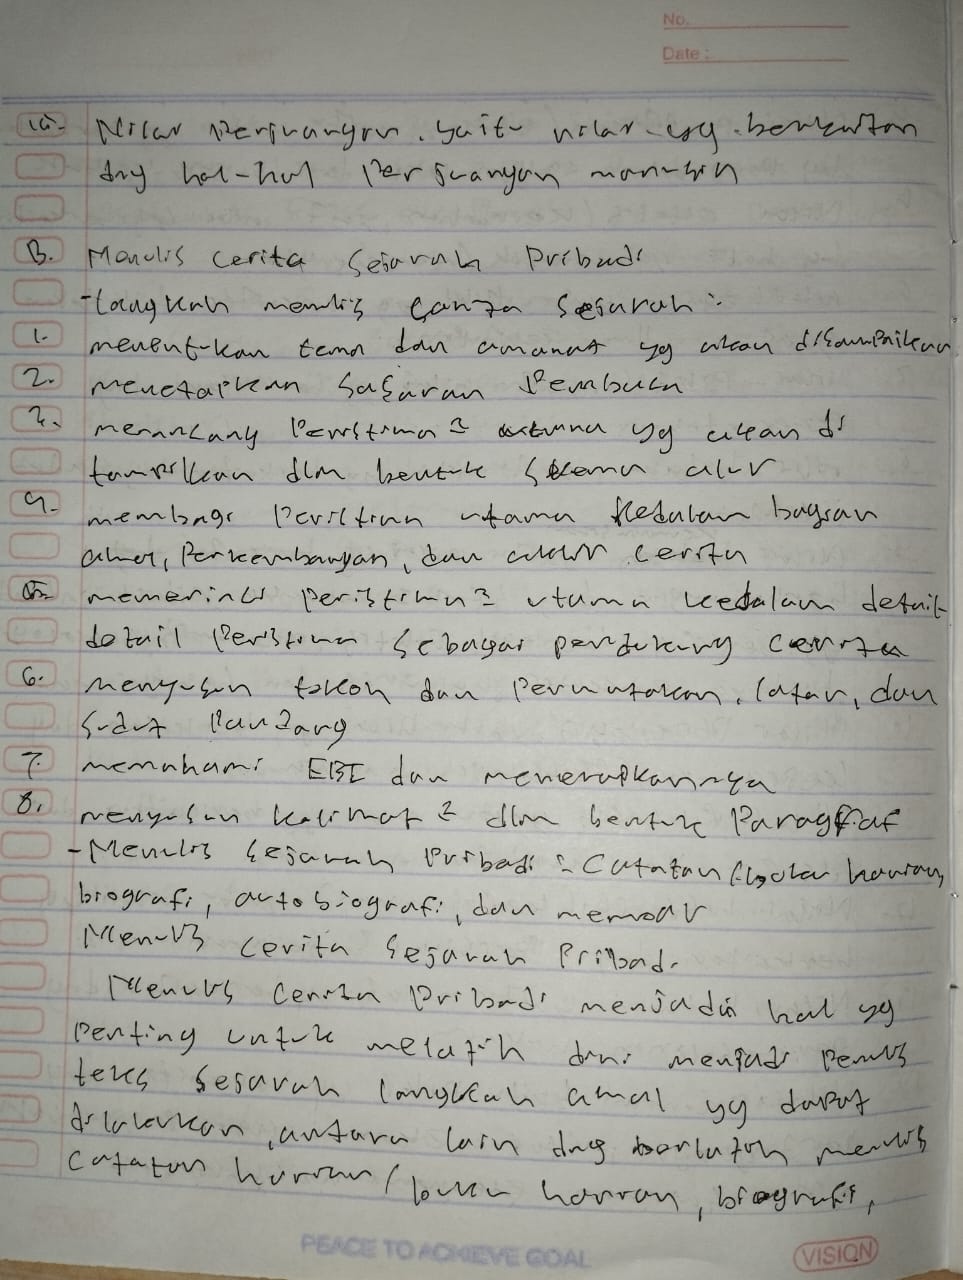 No.
Date :
10. Nilai Perjuangan. yaitu nilai yg berkaitan
dng hal-hal Perjuangan manusia
B. Menulis cerita Sejarah Pribadi
- langkah menulis cerita Sejarah :
1. menentukan tema dan amanat yg akan disampaikan
2. menetapkan Sasaran Pembaca
3. merancang Peristiwa2 utama yg akan di
tampilkan dlm bentuk Skema alur
4. membagi Peristiwa utama kedalam bagian
awal, Perkembangan, dan akhir cerita
5. memerinci peristiwa2 utama kedalam detail-
detail Peristiwa Sebagai pendukung cerita
6. menyusun tokoh dan Perwatakan, latar, dan
Sudut Pandang
7. memahami EBI dan menerapkannya
8. menyusun kalimat2 dlm bentuk Paragraf
- Menulis Sejarah Pribadi : Catatan harian,
biografi, autobiografi, dan memoar
Menulis cerita Sejarah Pribadi
Menulis Cerita Pribadi menjadi hal yg
Penting untuk melatih diri menjadi Penulis
teks Sejarah langkah awal yg dapat
dilakukan, antara lain dng berlatih menulis
Catatan harian / buku harian, biografi,
PEACE TO ACHIEVE GOAL
VISION